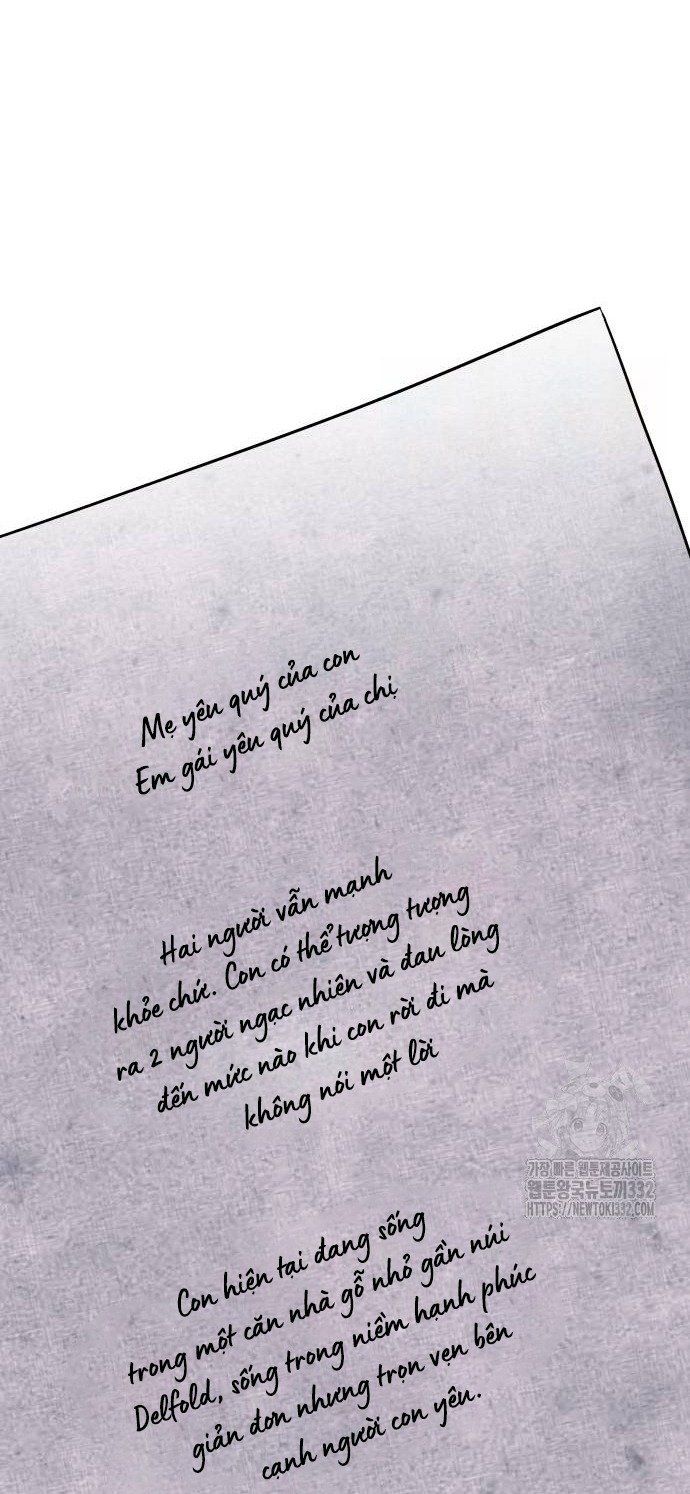 Mẹ yêu quý của con
Em gái yêu quý của chị
Hai người vẫn mạnh
khỏe chứ. Con có thể tượng tượng
ra 2 người ngạc nhiên và đau lòng
đến mức nào khi con rời đi mà
không nói một lời
가장 빠른 웹툰제공사이트
웹툰왕국뉴토끼332
HTTPS://NEWTOKI332.COM
Con hiện tại đang sống
trong một căn nhà gỗ nhỏ gần núi
Delfold, sống trong niềm hạnh phúc
giản đơn nhưng trọn vẹn bên
cạnh người con yêu.